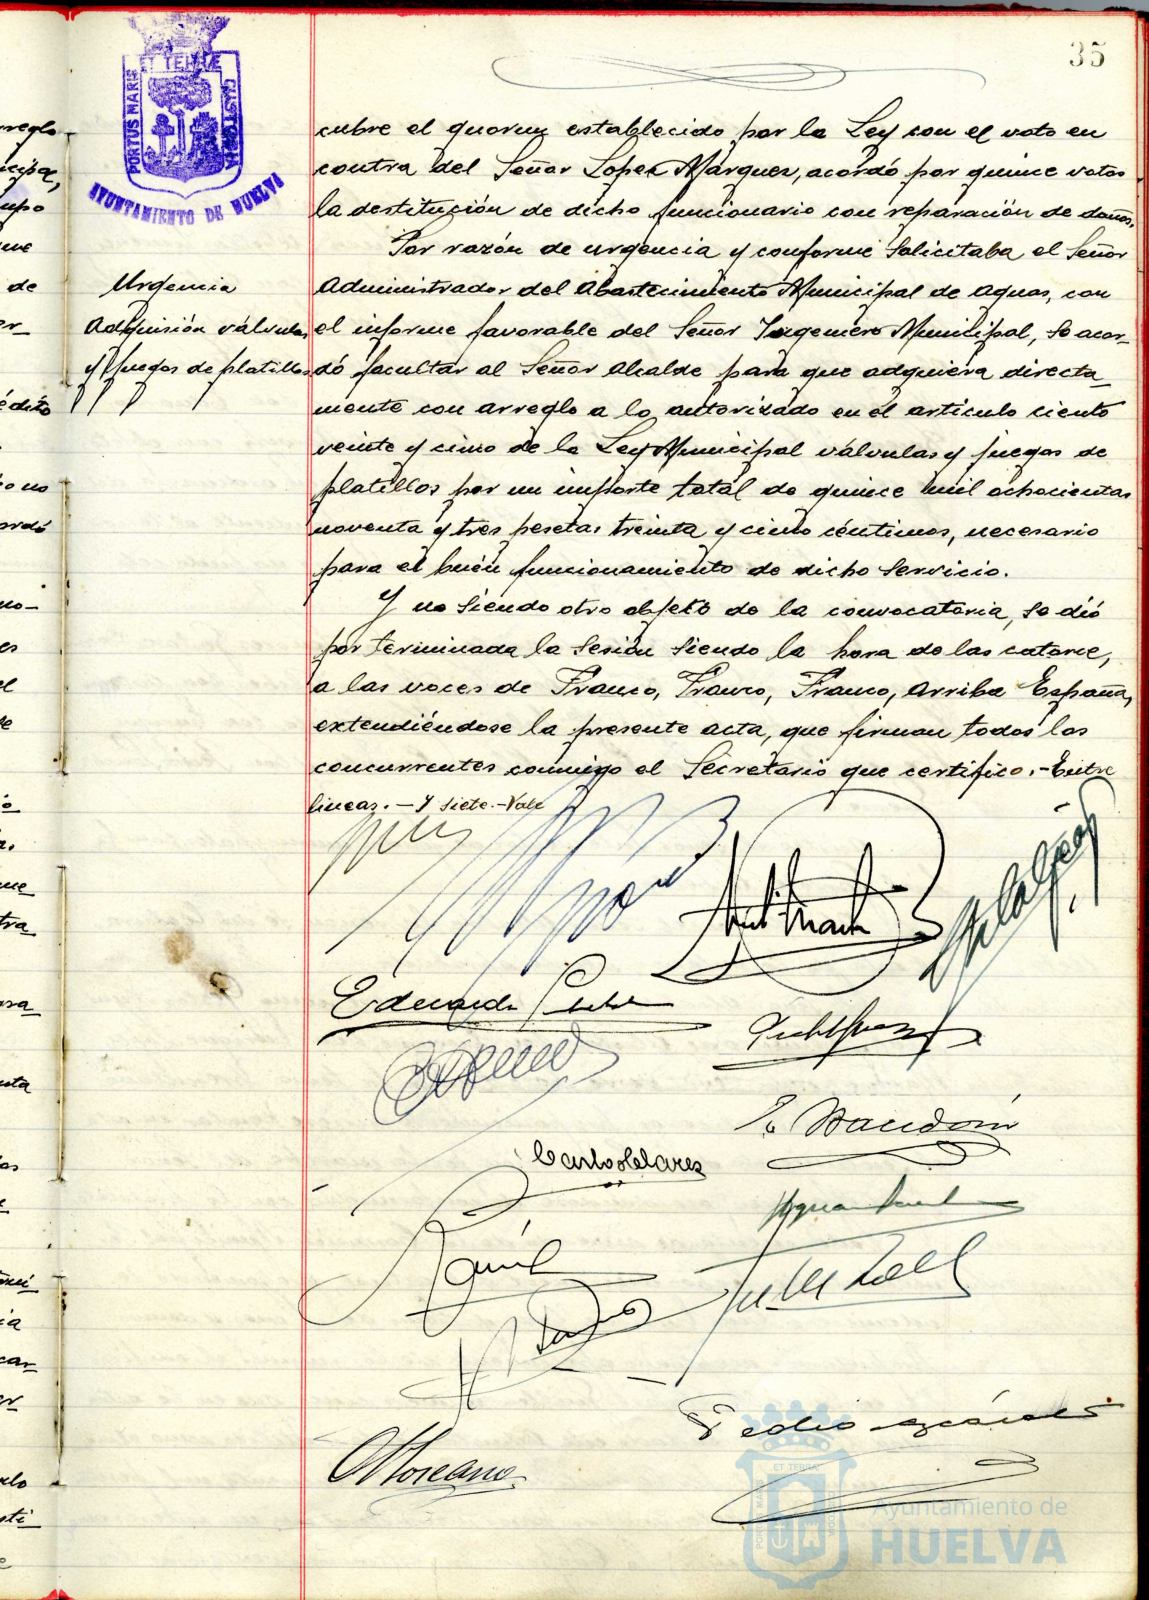 35
PORTUS MARIS ET TERRAE CUSTODIA
AYUNTAMIENTO DE HUELVA
cubre el quorum establecido por la Ley con el voto en
contra del Señor Lopez Márquez, acordó por quince votos
la destitución de dicho funcionario con reparación de daños.
Por razón de urgencia y conforme solicitaba el Señor
Urgencia
Administrador del Abastecimiento Municipal de Aguas, con
Adquisión válvulas
el informe favorable del Señor Ingeniero Municipal, se acor-
y juegos de platillos
dó facultar al Señor Alcalde para que adquiera directa
mente con arreglo a lo autorizado en el artículo ciento
veinte y cinco de la Ley Municipal válvulas y juegos de
platillos por un importe total de quince mil ochocientas
noventa y tres pesetas treinta y cinco céntimos, necesario
para el buén funcionamiento de dicho servicio.
Y no siendo otro objeto de la convocatoria, se dió
por terminada la sesión siendo la hora de las catorce,
a las voces de Franco, Franco, Franco, Arriba España,
extendiéndose la presente acta, que firman todos los
concurrentes conmigo el Secretario que certifico.-Entre
lineas.-Y siete.-Vale
Eduardo
Carlos
Pedro
Ayuntamiento de
HUELVA